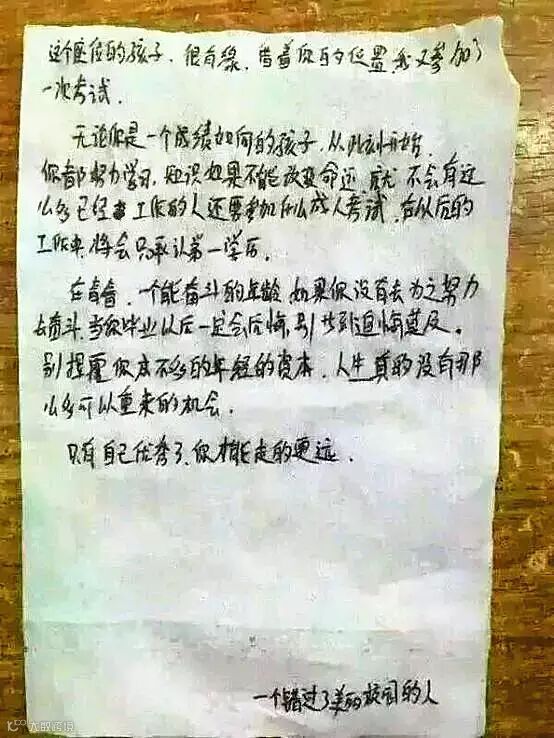 这个座位的孩子，很有缘，借着你的位置我又参加了
一次考试．
无论你是一个成绩如何的孩子，从此刻开始，
你都努力学习，知识如果不能改变命运，就不会有这
么多已经工作的人还要参加成人考试，在以后的
工作中将会只承认第一学历。
在青春，一个能奋斗的年龄，如果你没有去为之努力
去奋斗，当你毕业以后一定会后悔，别让到追悔莫及。
别挥霍你本不多的年轻的资本，人生真的没有那
么多可以重来的机会．
只有自己优秀了，你才能走的更远．
一个错过了美丽校园的人
大数跨境